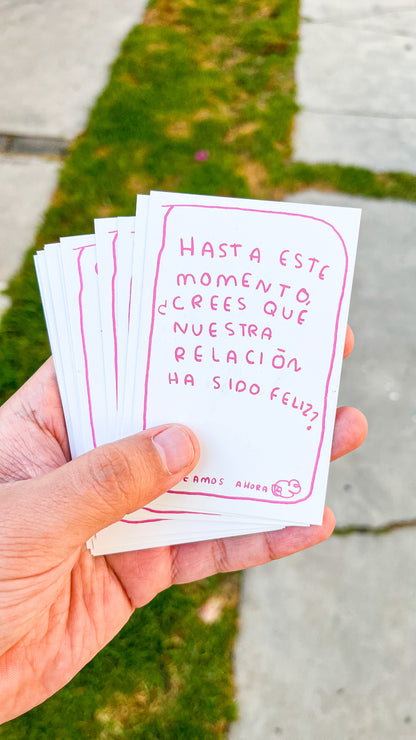 HASTA ESTE
MOMENTO,
¿CREES QUE
NUESTRA
RELACIÓN
HA SIDO FELIZ?
AHORA